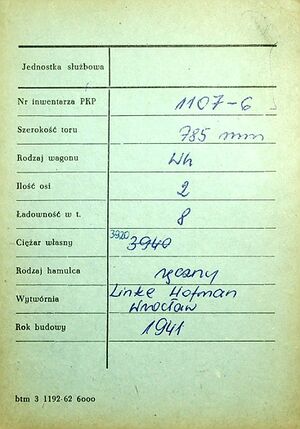 Jednostka służbowa
Nr inwentarza PKP 1107-6
Szerokość toru 785 mm
Rodzaj wagonu Wh
Ilość osi 2
Ładowność w t. 8
Ciężar własny 3920 3940
Rodzaj hamulca ręczny
Wytwórnia Linke Hofman
Wrocław
Rok budowy 1941
btm 3 1192-62 6000